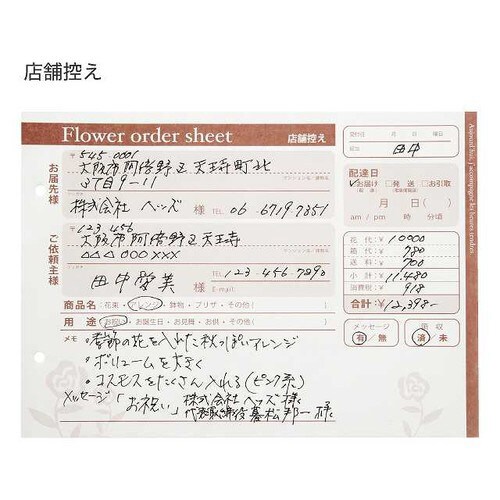 店舗控え
Flower order sheet 店舗控え
お届先様
〒545 0001
大阪市阿倍野区天王寺町北
3丁目9-11
株式会社 ヘッズ 様 TEL 06 6719 7851
ご依頼主様
〒123 456
大阪市阿倍野区天王寺
△△△ ○○○ ×××
田中愛美 様 TEL 123 456 7890
E-mail:
商品名:花束・アレンジ・鉢物・ブリザ・その他( )
用途:お祝い・お誕生日・お見舞・お供・その他( )
メモ ・季節の花を入れた秋っぽいアレンジ
・ボリュームを大きく
・コスモスをたくさん入れる(ピンク系)
メッセージ「お祝い」株式会社ヘッズ様
代表取締役 暮松邦一様
受付日 月 日 曜日
田中
配達日
☑お届け □発送 □お引取
月 日( )
am / pm 時 分頃
花代:¥ 10000
箱代:¥ 780
送料:¥ 700
小計:¥ 11,480
消費税:¥ 918
合計:¥ 12,398-
メッセージ 領収
有/無 済/未
Aujourd'hui, j'accompagne les fleurs tendres.